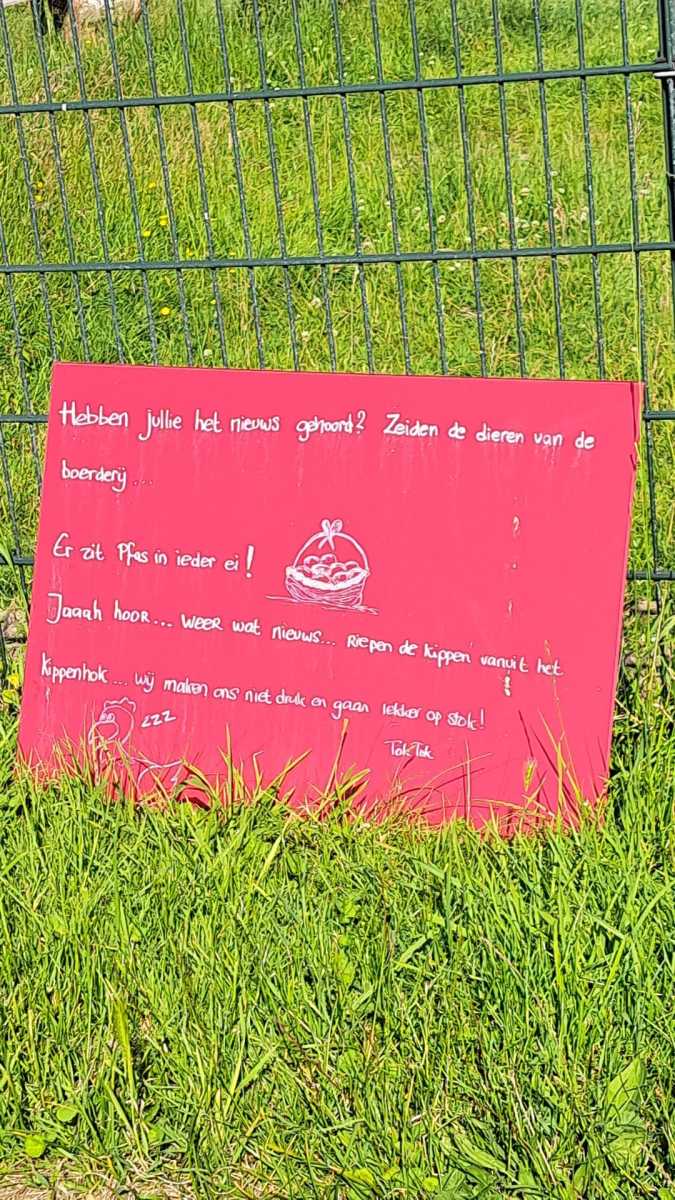 Hebben jullie het nieuws gehoord? Zeiden de dieren van de
boerderij...
Er zit Pfas in ieder ei!
Jaaah hoor... weer wat nieuws... Riepen de kippen vanuit het
kippenhok... wij maken ons niet druk en gaan lekker op stok!
Tok Tok
zzz